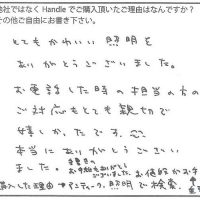 他社ではなく Handle でご購入頂いたご理由はなんですか?
その他ご自由にお書き下さい。
とてもかわいい照明を
ありがとうございました。
お電話した時の担当の方の
ご対応もとても親切で
嬉しかったです。
本当にありがとうござい
ました。
手書きの
お手紙もありがとう
ございました。
購入した理由 → アンティーク、照明で検索